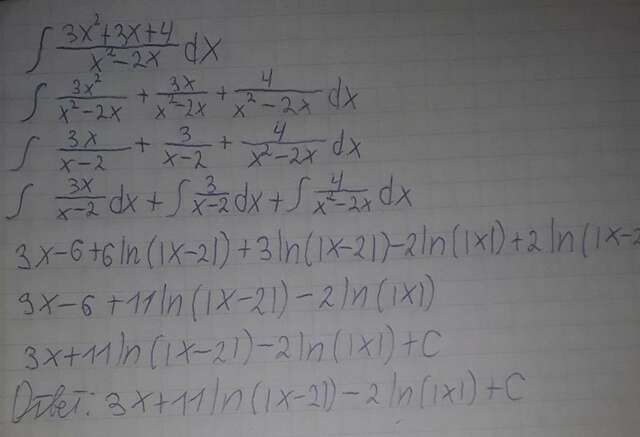 ∫ (3x²+3x+4)/(x²-2x) dx
∫ 3x²/(x²-2x) + 3x/(x²-2x) + 4/(x²-2x) dx
∫ 3x/(x-2) + 3/(x-2) + 4/(x²-2x) dx
∫ 3x/(x-2) dx + ∫ 3/(x-2) dx + ∫ 4/(x²-2x) dx
3x-6+6ln(|x-2|)+3ln(|x-2|)-2ln(|x|)+2ln(|x-2
3x-6+11ln(|x-2|)-2ln(|x|)
3x+11ln(|x-2|)-2ln(|x|)+C
Ответ: 3x+11ln(|x-2|)-2ln(|x|)+C